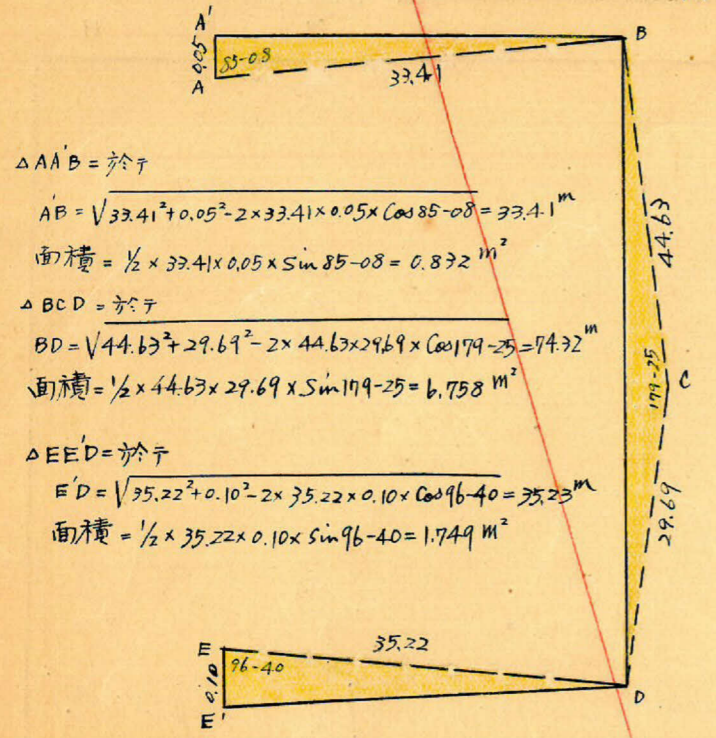 A'
B
0.05
85-08
A
33.41
△AA'B = 於テ
A'B = √33.41²+0.05²-2×33.41×0.05×Cos85-08 = 33.41m
面積 = 1/2 × 33.41×0.05×Sin85-08 = 0.832 m²
44.63
△BCD = 於テ
BD = √44.63²+29.69²-2×44.63×29.69×Cos179-25 = 74.32m
面積 = 1/2 × 44.63×29.69×Sin179-25 = 6.758 m²
179-25
C
△EE'D = 於テ
E'D = √35.22²+0.10²-2×35.22×0.10×Cos96-40 = 35.23m
面積 = 1/2 × 35.22×0.10×Sin96-40 = 1.749 m²
29.69
E
35.22
96-40
0.10
E'
D